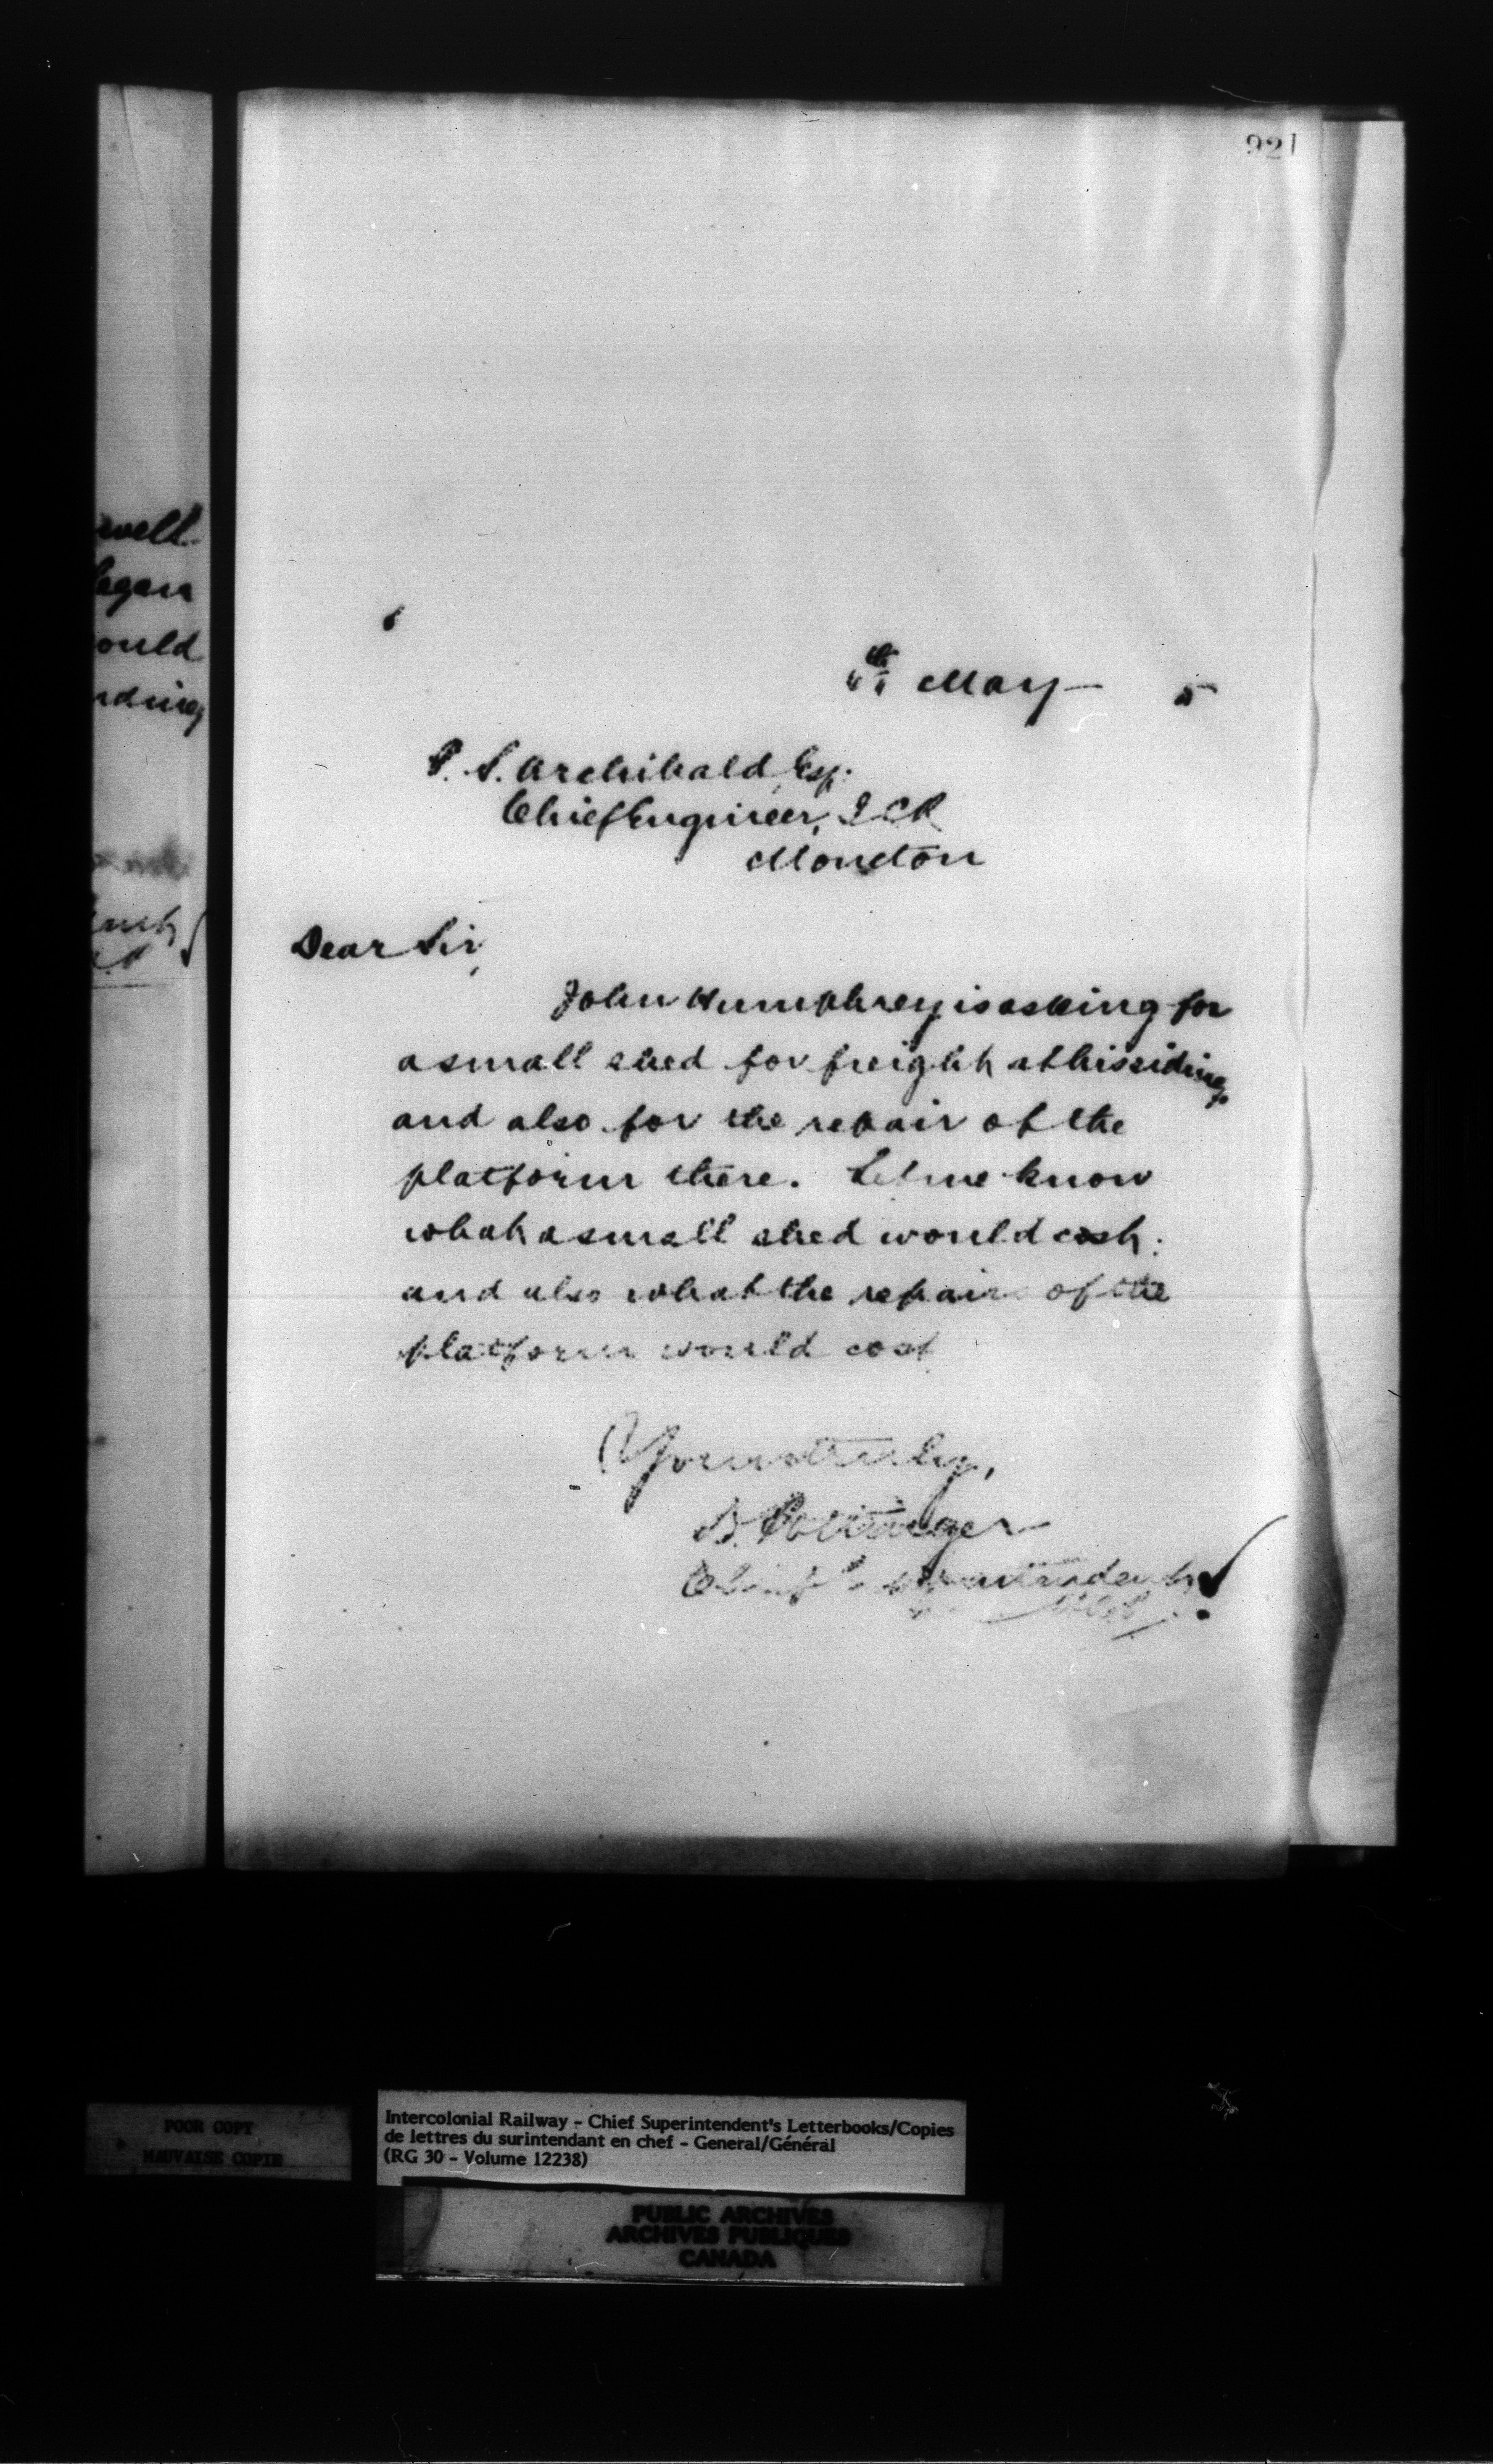 921
well
egen
ould
nding
th May 5
P. S. Archibald Esq.
Chief Engineer, ICR
Moncton
Dear Sir,
John Humphrey is asking for
a small shed for freight at his siding
and also for the repair of the
platform there. Let me know
what a small shed would cost:
and also what the repair of the
platform would cost
Yours truly,
D. Pottinger
Chief Superintendent
POOR COPY
MAUVAISE COPIE
Intercolonial Railway - Chief Superintendent's Letterbooks/Copies
de lettres du surintendant en chef - General/Général
(RG 30 - Volume 12238)
PUBLIC ARCHIVES
ARCHIVES PUBLIQUES
CANADA